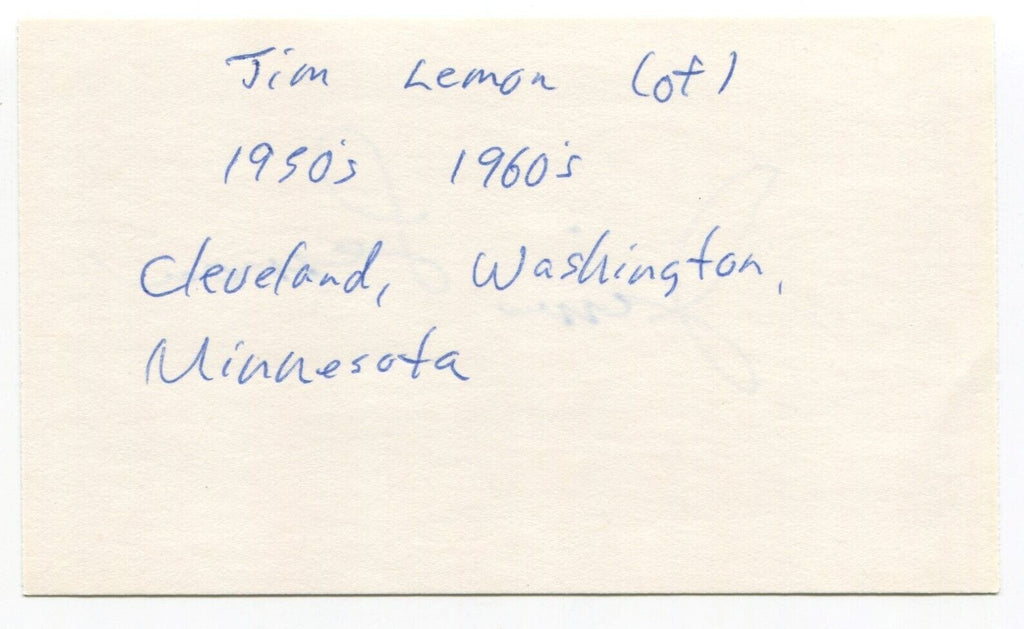 Jim Lemon (of)
1950's 1960's
Cleveland, Washington,
Minnesota